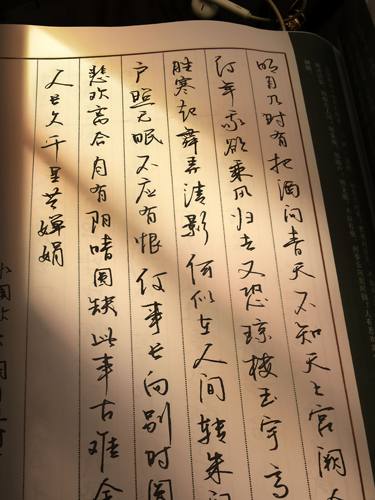 明月几时有把酒问青天不知天上宫阙
何年我欲乘风归去又恐琼楼玉宇高
胜寒起舞弄清影何似在人间转朱
户照无眠不应有恨何事长向别时圆
悲欢离合月有阴晴圆缺此事古难全
人长久千里共婵娟